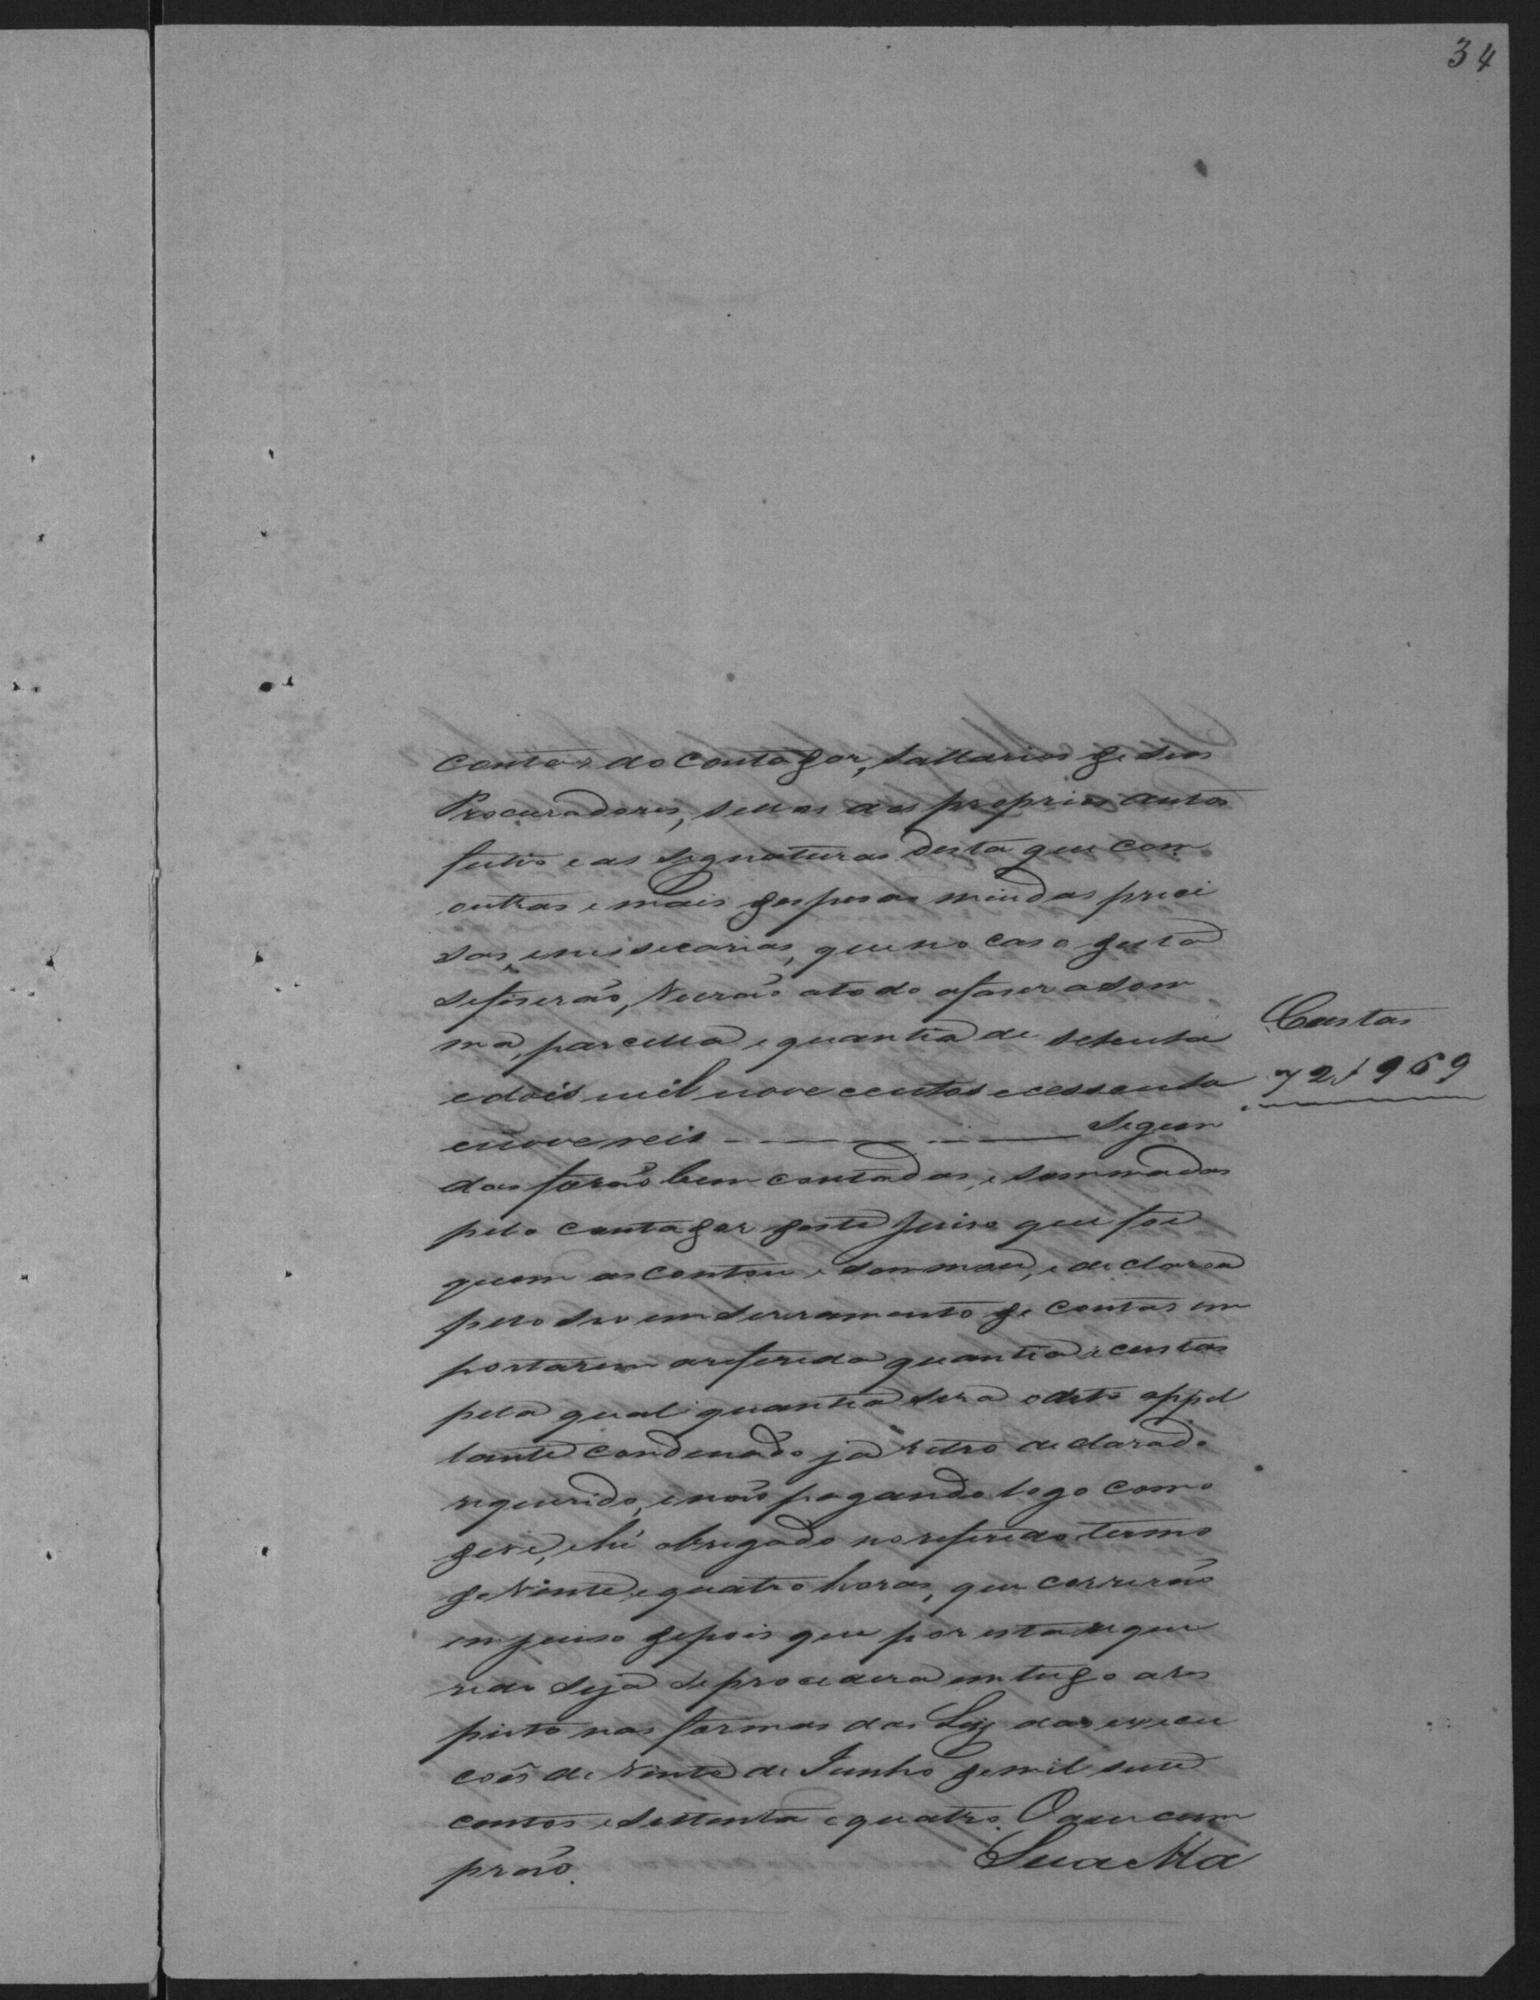 34
contas do contador, sallarios de seus
Procuradores, sellos dos proprios autos
feitio e as signaturas desta que com
outras e mais despesas miudas preci
sas, enessecarias, que no caso desta
sefiserão, Veerão atodo afaser a som
ma, parcella e quantia de setenta
e dois mil nove centos e cessenta
enove reis — — — Segun
das forão bem contadas, e sommadas
pelo contador deste Juiso que foi
quem as contou e sommou, e declarou
pelo seu em serramento de contas im
portarem areferida quantia e custas
pela qual quantia sera o dito appel
lante condenado já retro declarado
requerido, enão pagando logo como
deve, ehé obrigado no referido termo
de Vinte e quatro horas, que correrão
em juiso depois que por esta reque
rido seja se procedera em tudo ares
peito nas formas das Leij das execu
coẽs de Vinte de Junho de mil sete
centos e settenta e quatro. O que cum
prão. Sua Ma
Custas
72$969